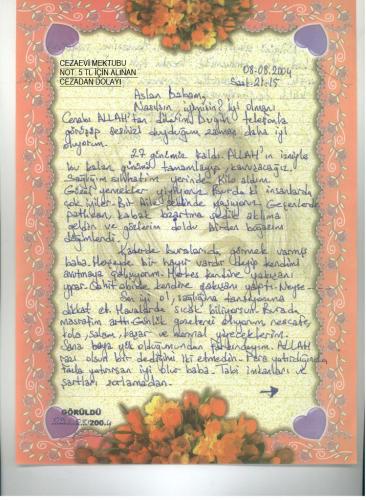 CEZAEVİ MEKTUBU
NOT: 5 TL İÇİN ALINAN
CEZADAN DOLAYI
08.08.2004
Saat: 21:15
Aslan Babam,
Nasılsın iyimisin? İyi olmanı
Cenabı ALLAH'tan dilerim. Bugün telefonla
görüşüp sesinizi duyduğum zaman daha iyi
oluyorum.
27 günümüz kaldı. ALLAH'ın izniyle
bu kalan günümü tamamlayıp, kavuşacağız.
Sağlığım sıhhatim yerinde, kilo aldım.
Güzel yemekler yiyoruz. Burda ki insanlarda
çok iyiler. Bir Aile şeklinde yaşıyoruz. Geçenlerde
patlıcan kabak kızartma yedik aklıma
geldin ve gözlerim doldu birden boğazım
düğümlendi.
Kaderde buralarıda görmek varmış
baba. Herşeyde bir hayır vardır deyip kendimi
avutmaya çalışıyorum. Herkes kendine yakışanı
yapar. Sahit abi'de kendine yakışanı yaptı. Neyse...
Sen iyi ol, sağlığına tansiyonuna
dikkat et. Havalarda sıcak biliyorsun. Burada
masrafım arttı. Günlük gazetemi alıyorum, nescafe,
kola, salam, kaşar ve normal yiyeceklerim.
Sana baya yük olduğumun farkındayım. ALLAH
razı olsun bir dediğimi iki etmedin. Para yatırdığında
fazla yatırırsan iyi olur baba. Tabi imkanları ve
şartları zorlamadan.
GÖRÜLDÜ